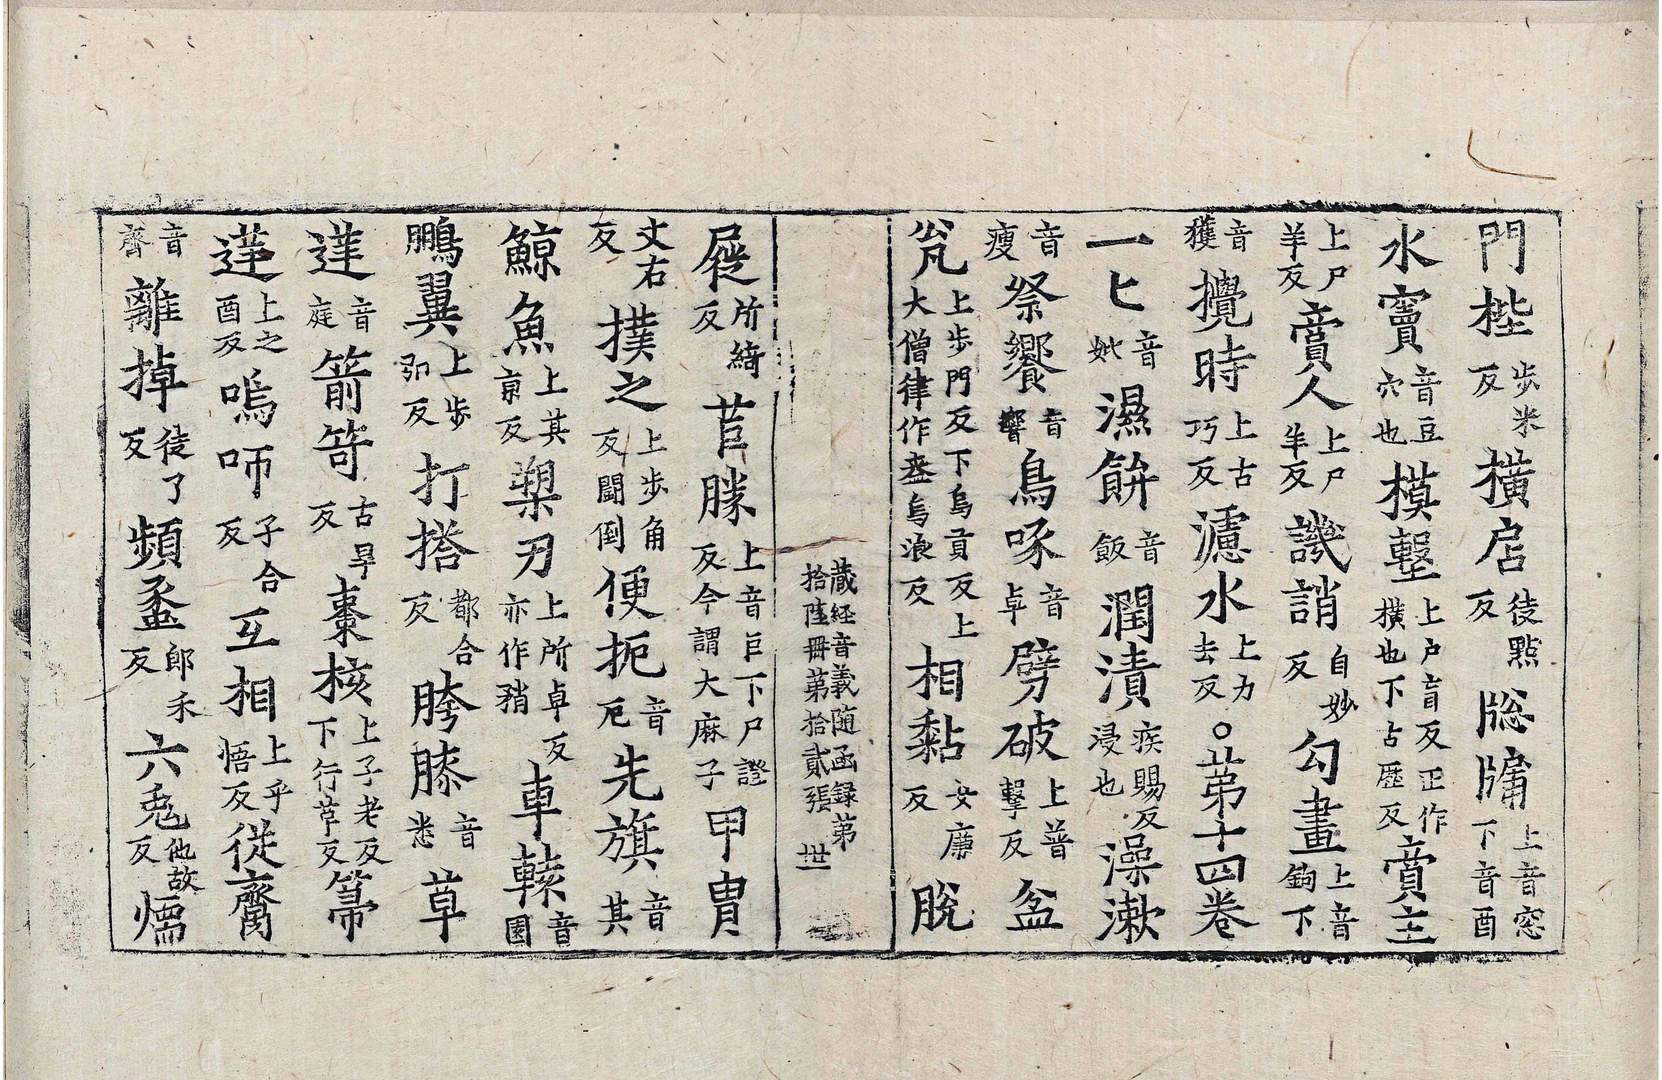 門梐步米反橫㢆徒點反牕牖上音窓下音酉
水竇音豆穴也橫墼上戶盲反正作橫也下占歷反賣主
上尸羊反賣人上尸羊反譏誚自妙反勾畫上音鉤下
音獲攪時上古巧反濾水上力去反○苐十四卷
一匕音妣濕餅音飯潤漬疾賜反浸也澡漱
音瘦祭饗音響鳥啄音卓劈破上普擊反盆
瓮上步門反下烏貢反上大僧律作盎烏浪反相黏女廉反脫
藏経音義随函録第拾陸冊第拾貳張 世
屣所綺反苣勝上音巨下尸證反今謂大麻子甲胄
丈右反撲之上步角反鬪倒便扼音厄先旗音其
鯨魚上其京反槊刃上所卓反亦作矟車轅音園
鵬翼上步弸反打搭都合反胯膝音悉草
莛音庭箭笴古旱反棗核上子老反下行革反箒
莛上之酉反嗚咂子合反互相上乎悟反從齎
音齊離掉徒了反頻盉郎禾反六兎他故反燸